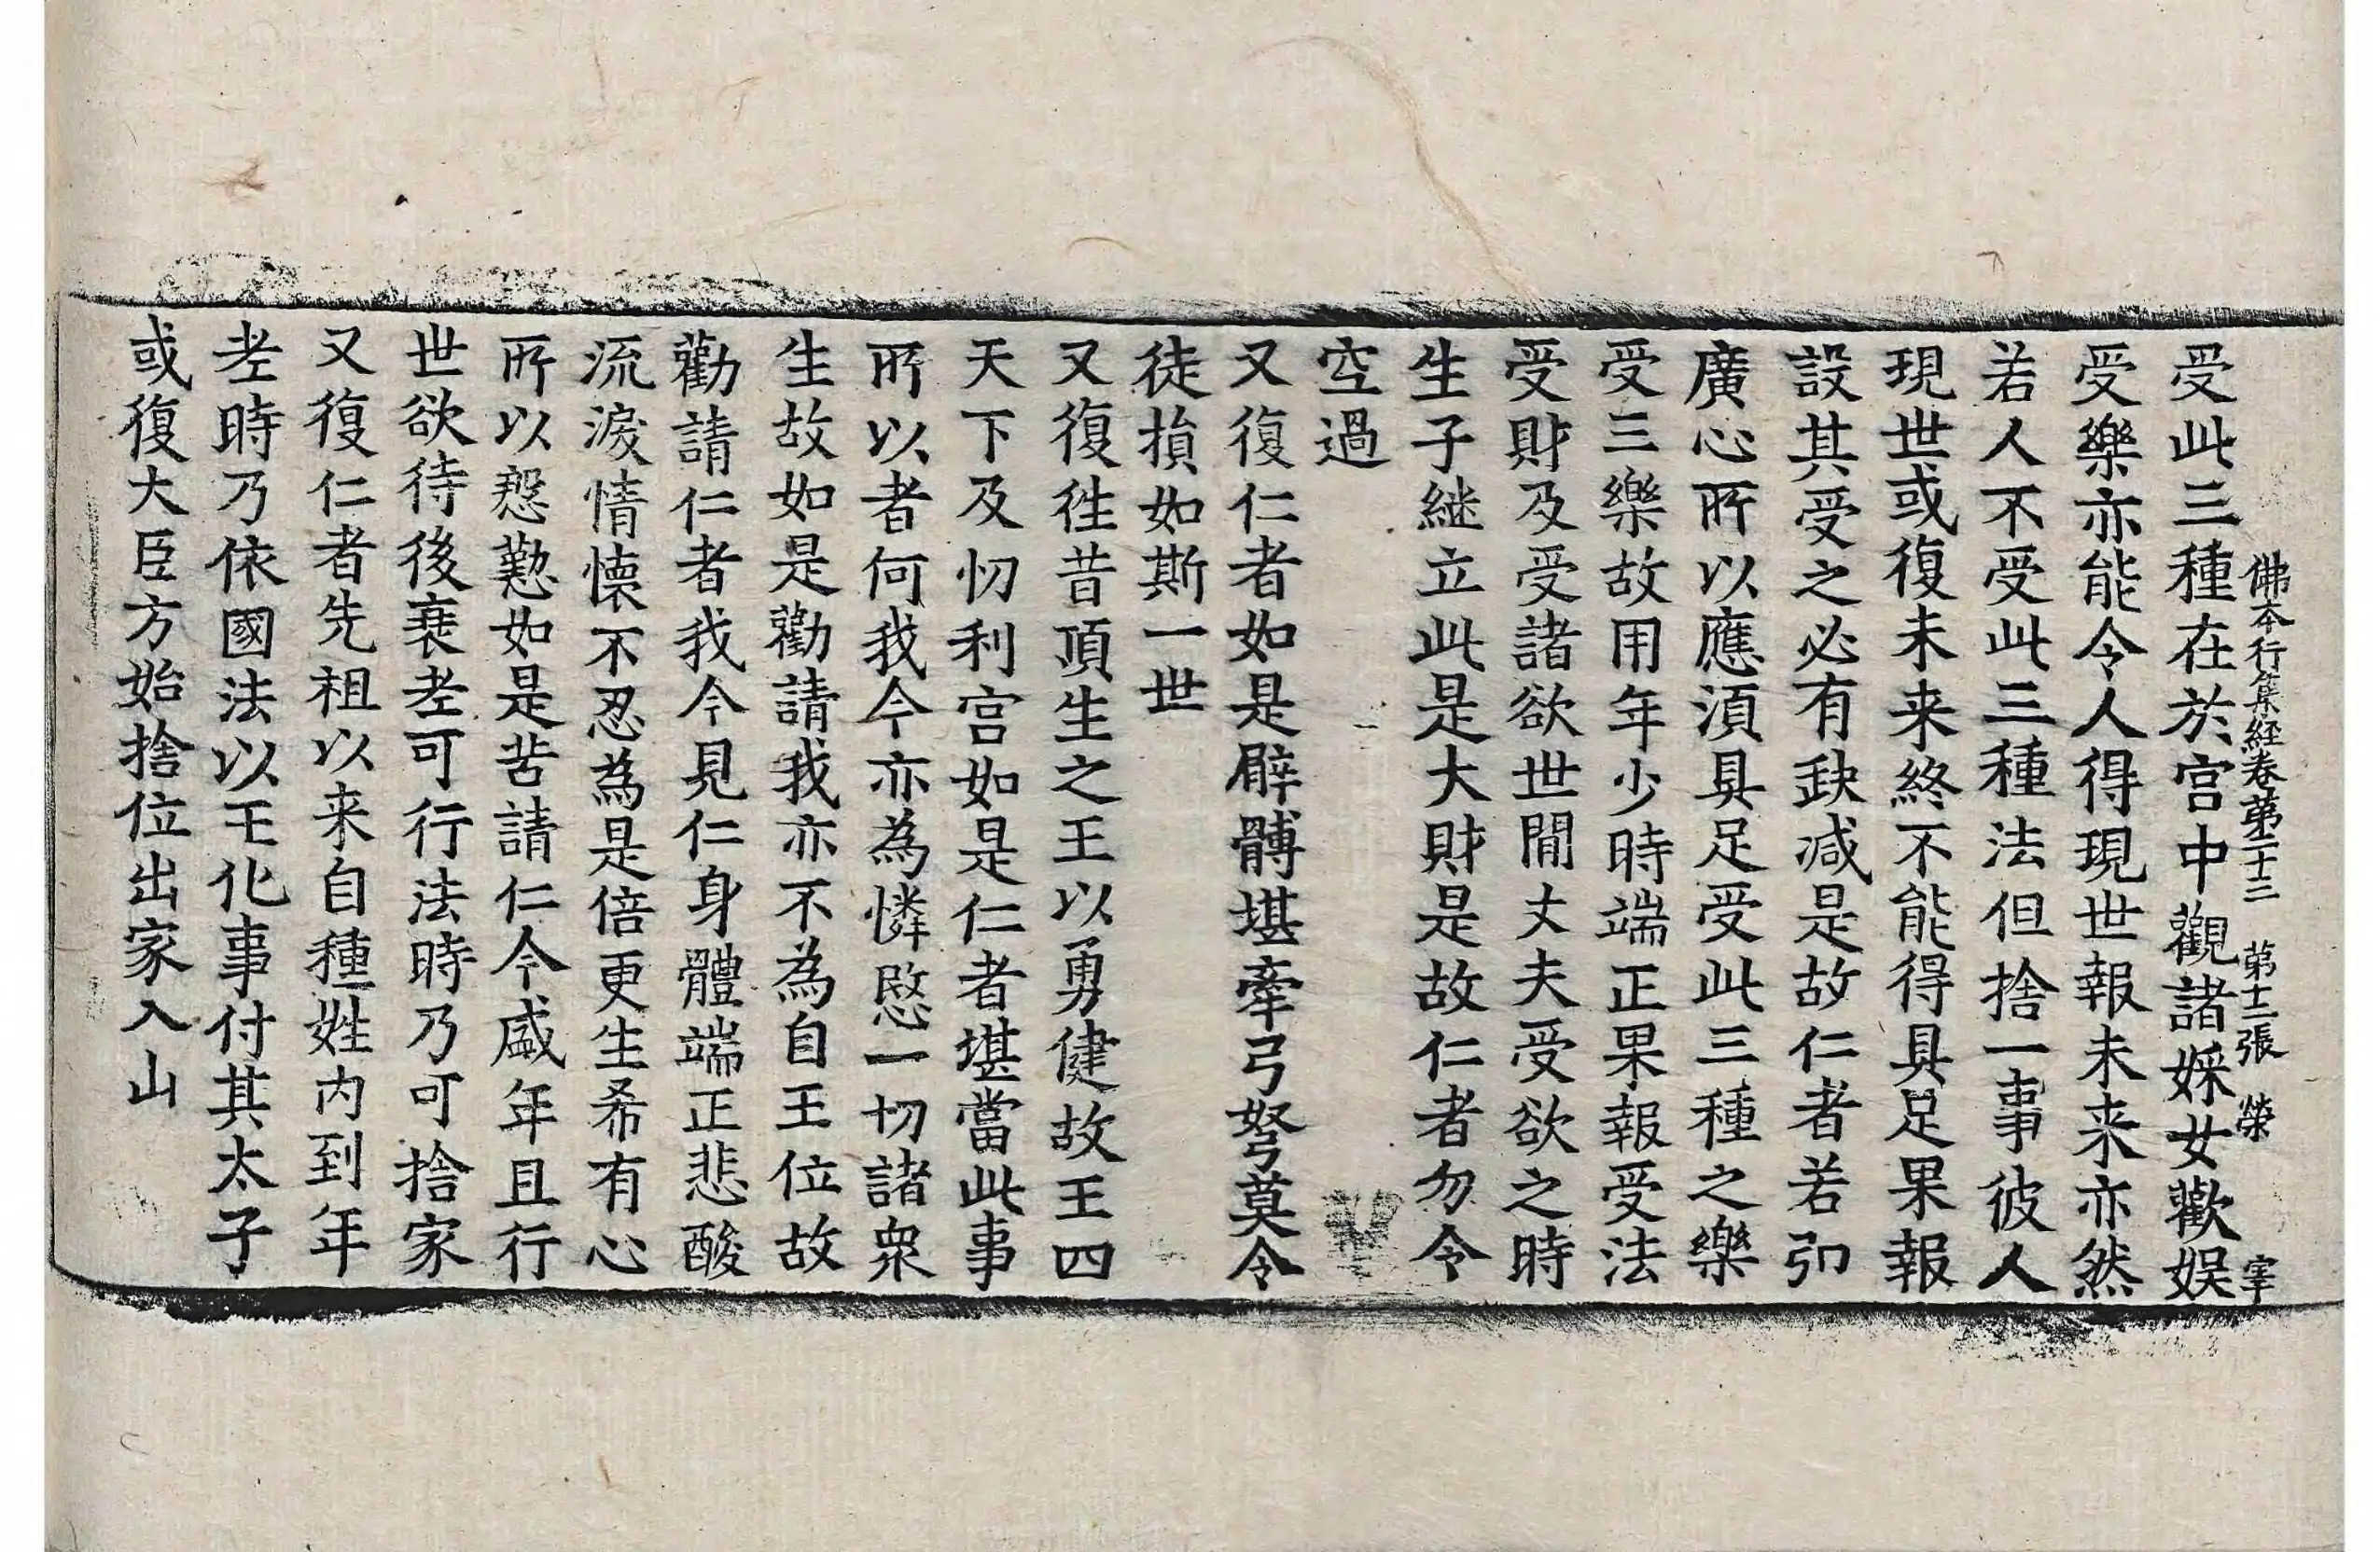 佛本行集経卷第二十三　第十三張　榮　宰
受此三種在於宫中觀諸婇女歡娱
受樂亦能令人得現世報未来亦然
若人不受此三種法但捨一事彼人
現世或復未来終不能得具足果報
設其受之必有缺减是故仁者若卬
廣心所以應湏具足受此三種之樂
受三樂故用年少時端正果報受法
受財及受諸欲世間丈夫受欲之時
生子継立此是大財是故仁者勿令
空過
又復仁者如是臂髆堪牽弓弩莫令
徒損如斯一世
又復徃昔頂生之王以勇健故王四
天下及忉利宫如是仁者堪當此事
所以者何我今亦為憐愍一切諸衆
生故如是勸請我亦不為自王位故
勸請仁者我今見仁身體端正悲酸
流淚情懐不忍為是倍更生希有心
所以慇懃如是苦請仁今盛年且行
世欲待後衰老可行法時乃可捨家
又復仁者先祖以来自種姓内到年
老時乃依國法以王化事付其太子
或復大臣方始捨位出家入山